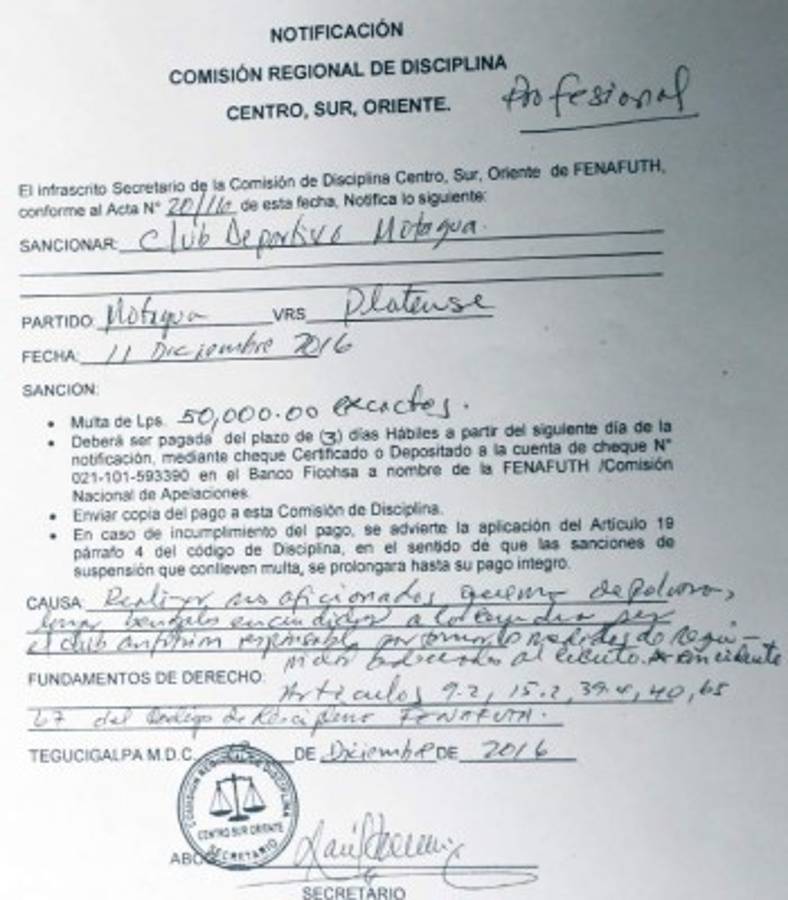 NOTIFICACIÓN
COMISIÓN REGIONAL DE DISCIPLINA
CENTRO, SUR, ORIENTE. Profesional
El infrascrito Secretario de la Comisión de Disciplina Centro, Sur, Oriente de FENAFUTH,
conforme al Acta N° 20/16 de esta fecha, Notifica lo siguiente:
SANCIONAR: Club Deportivo Motagua.
PARTIDO: Motagua VRS Platense
FECHA: 11 Diciembre 2016
SANCION:
• Multa de Lps. 50,000.00 exactos.
• Deberá ser pagada del plazo de (3) días Hábiles a partir del siguiente día de la
notificación, mediante cheque Certificado o Depositado a la cuenta de cheque N°
021-101-593390 en el Banco Ficohsa a nombre de la FENAFUTH /Comisión
Nacional de Apelaciones.
• Enviar copia del pago a esta Comisión de Disciplina.
• En caso de incumplimiento del pago, se advierte la aplicación del Artículo 19
párrafo 4 del código de Disciplina, en el sentido de que las sanciones de
suspensión que conlleven multa, se prolongara hasta su pago integro.
CAUSA: Realizar sus aficionados quema de polvora,
bengalas encendidas a ser
el club anfitrion responsable por tomar medidas de
al evento. Reincidente
FUNDAMENTOS DE DERECHO:
Artículos 9.2, 15.2, 39.4, 40, 65
67 del Codigo de Disciplina FENAFUTH.
TEGUCIGALPA M.D.C. DE Diciembre DE 2016
COMISION REGIONAL DE DISCIPLINA
CENTRO SUR ORIENTE
SECRETARIO
ABOG
SECRETARIO